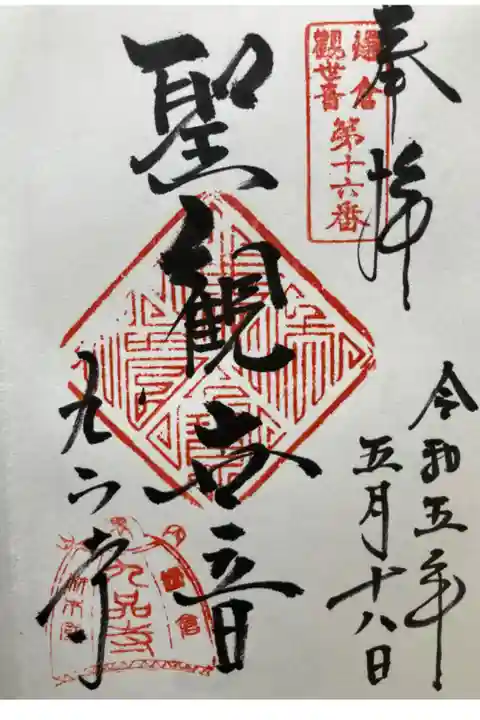 奉拝
鎌倉
観世音
第十六番
聖観世音
九品寺
令和五年
五月十八日
九品寺